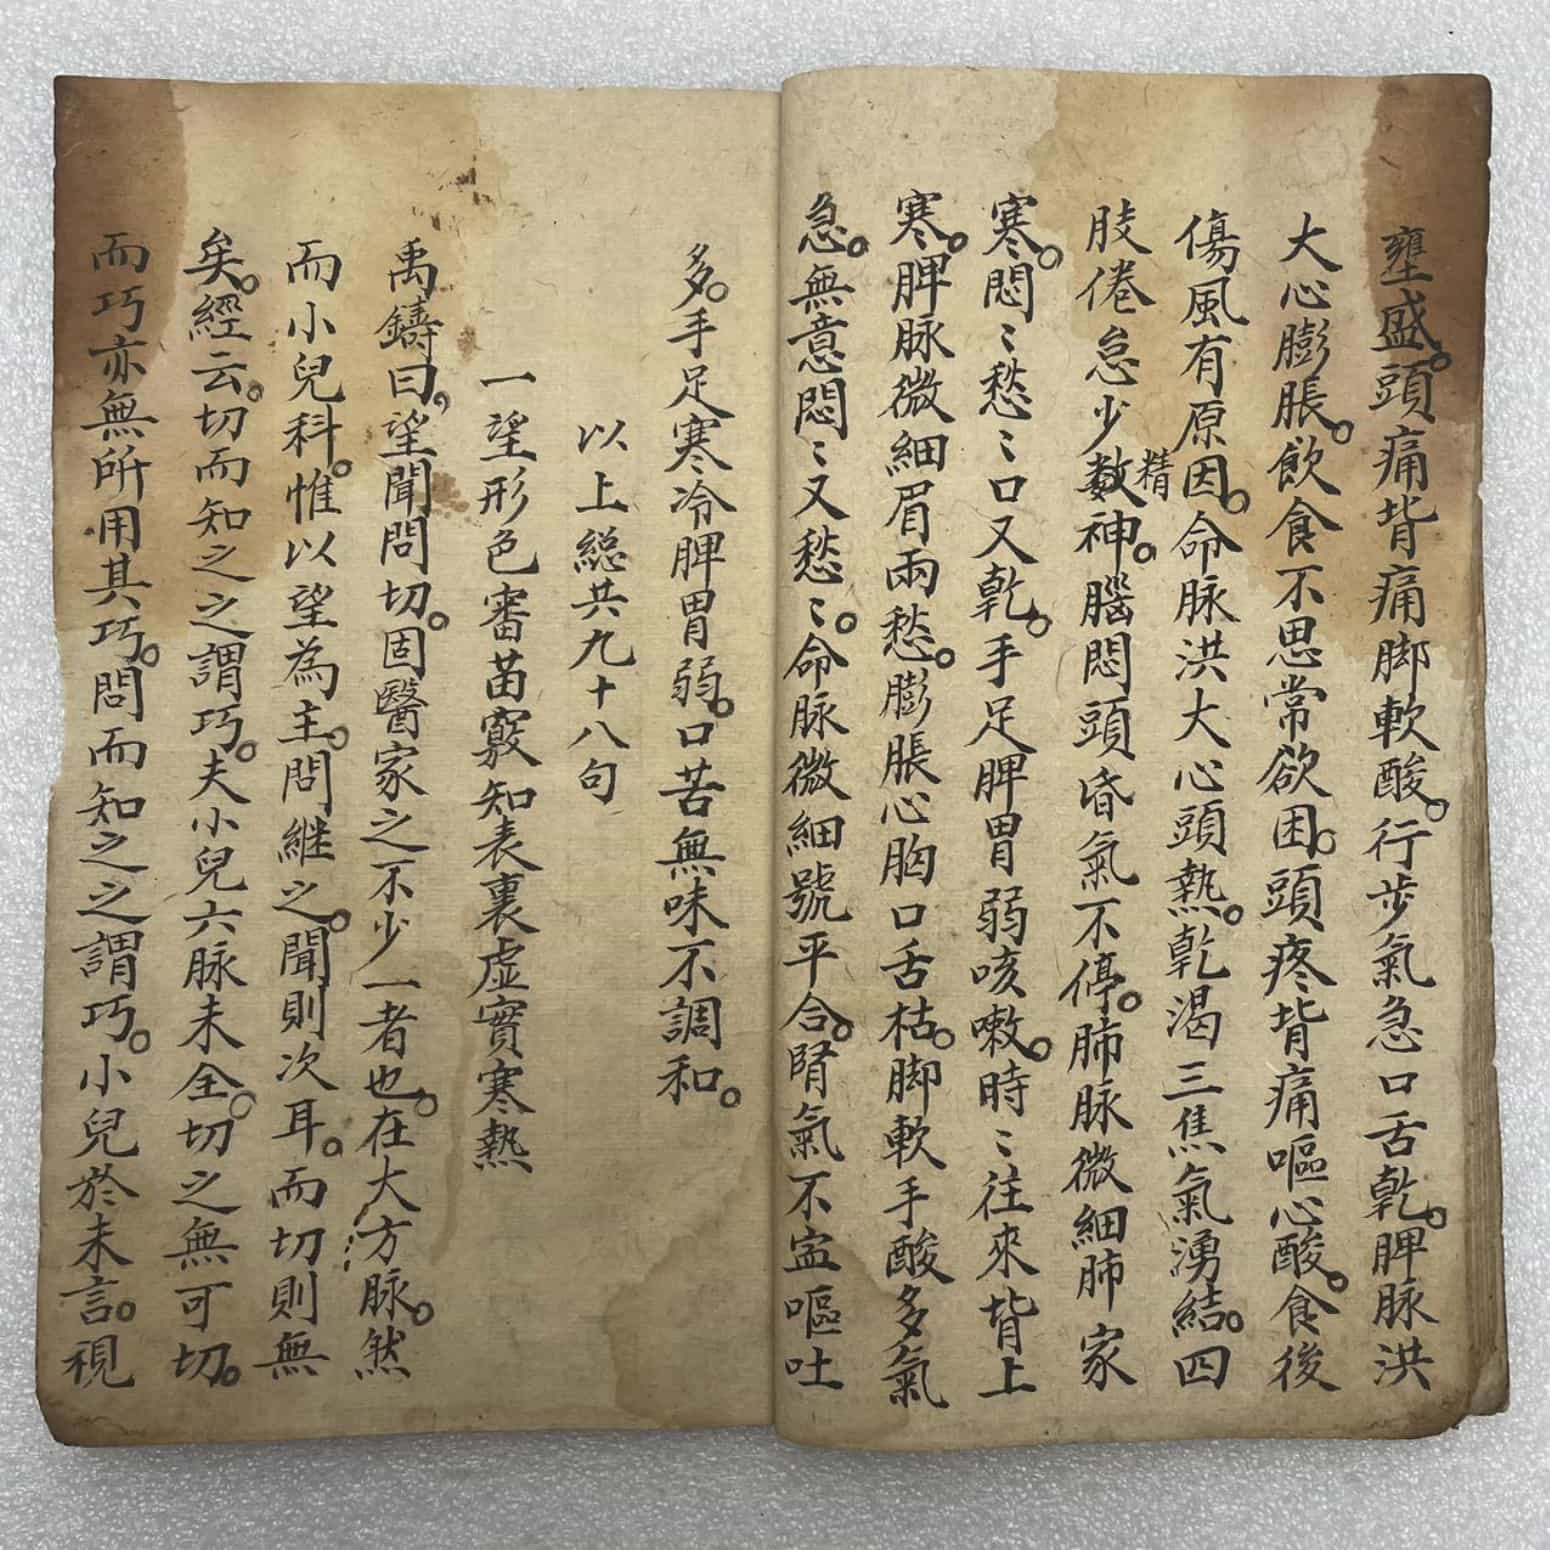 壅盛。頭痛背痛脚軟酸。行步氣急口舌乾。脾脉洪
大心膨脹。飲食不思常欲困。頭疼背痛嘔心酸。食後
傷風有原因。命脉洪大心頭熱。乾渴三焦氣湧結。四
肢倦怠少数精神。腦悶頭昏氣不停。肺脉微細肺家
寒。悶〻愁〻口又乾。手足脾胃弱咳嗽。時〻往來背上
寒。脾脉微細眉兩愁。膨脹心胸口舌枯。脚軟手酸多氣
急。無意悶〻又愁〻。命脉微細號平合。腎氣不㝎嘔吐
多。手足寒冷脾胃弱。口苦無味不調和。
以上総共九十八句
一望形色審苗竅知表裏虛實寒熱
禹鑄曰，望聞問切。固醫家之不少一者也。在大方脉。然
而小兒科。惟以望為主。問継之。聞則次耳。而切則無
矣。經云。切而知之之謂巧。夫小兒六脉未全。切之無可切。
而巧亦無所用其巧。問而知之之謂巧。小兒於未言。視